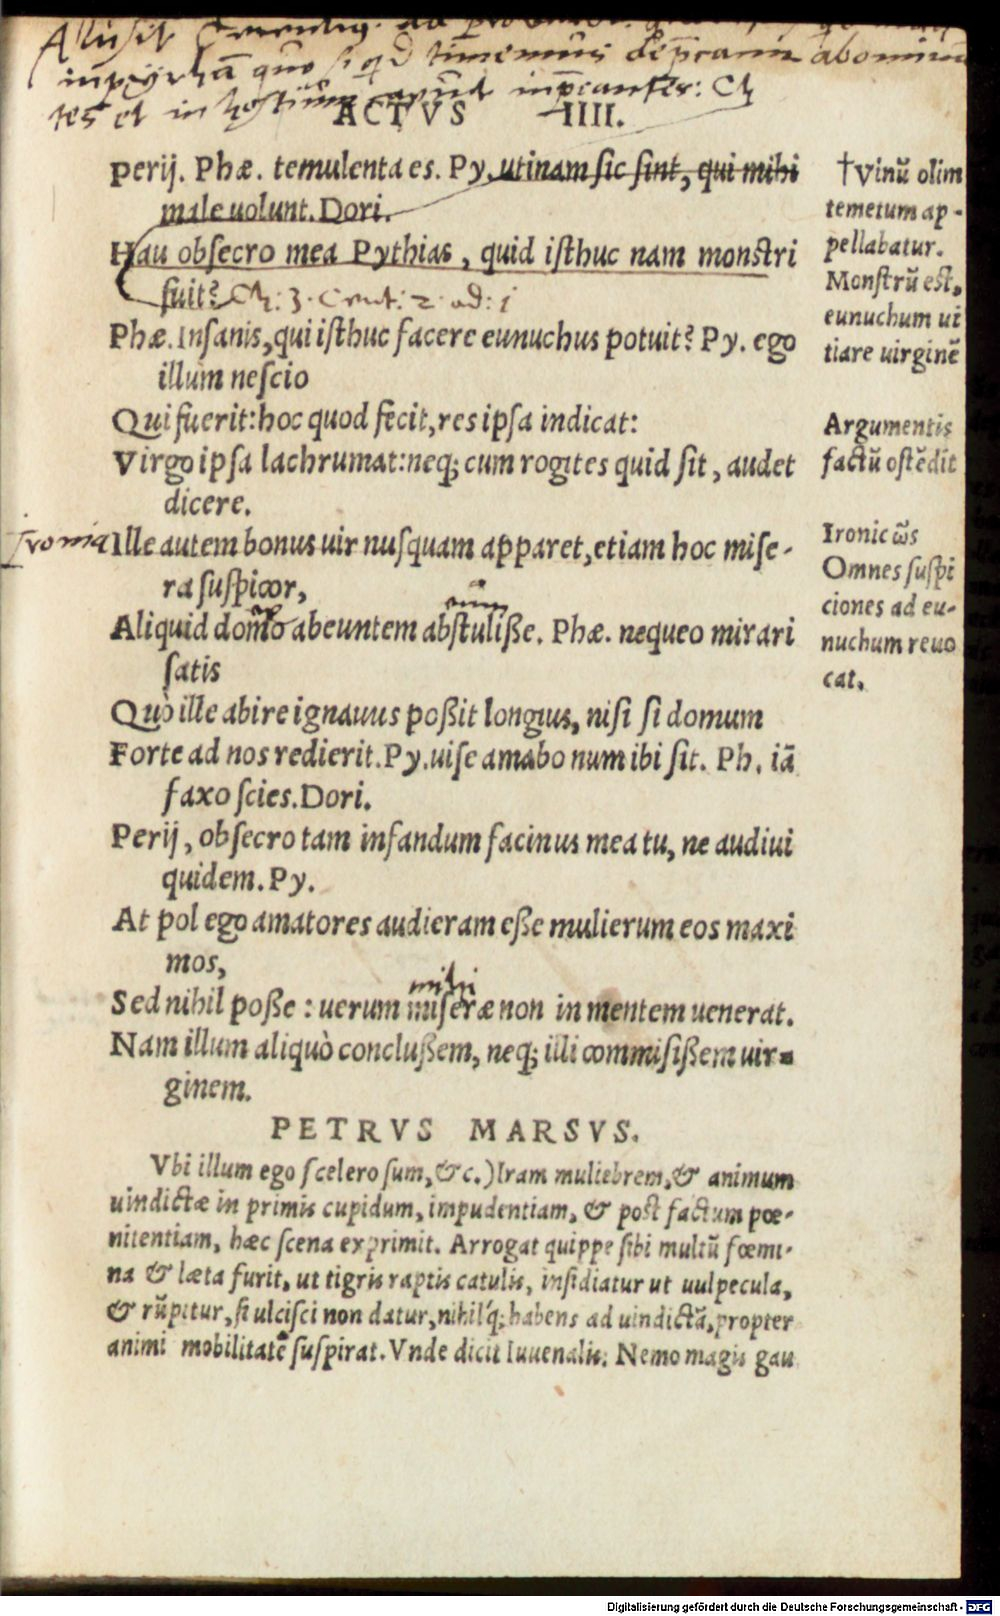 timemus
tes et in
ACTVS IIII.
perij. Phæ. temulenta es. Py. utinam sic sint, qui mihi
male uolunt. Dori.
Hau obsecro mea Pythias, quid isthuc nam monstri
fuit?
Phæ. Insanis, qui isthuc facere eunuchus potuit? Py. ego
illum nescio
Qui fuerit: hoc quod fecit, res ipsa indicat:
Virgo ipsa lachrumat: neq; cum rogites quid sit, audet
dicere.
Ironia
Ille autem bonus uir nusquam apparet, etiam hoc mise-
ra suspicor,
Aliquid domo abeuntem abstulisse. Phæ. nequeo mirari
satis
Quò ille abire ignauus possit longius, nisi si domum
Forte ad nos redierit. Py. uise amabo num ibi sit. Ph. iã
faxo scies. Dori.
Perij, obsecro tam infandum facinus mea tu, ne audiui
quidem. Py.
At pol ego amatores audieram esse mulierum eos maxi
mos,
mihi
Sed nihil posse: uerum miseræ non in mentem uenerat.
Nam illum aliquò conclussem, neq; illi commisissem uir-
ginem.
†Vinũ olim
temetum ap-
pellabatur.
Monstrũ est,
eunuchum ui
tiare uirginẽ
Argumentis
factũ ostẽdit
Ironicῶs
Omnes suspi
ciones ad eu-
nuchum reuo
cat.
PETRVS MARSVS.
Vbi illum ego scelerosum, &c.) Iram muliebrem, & animum
uindictæ in primis cupidum, impudentiam, & post factum pœ-
nitentiam, hæc scena exprimit. Arrogat quippe sibi multũ fœmi-
na & læta furit, ut tigris raptis catulis, insidiatur ut uulpecula,
& rũpitur, si ulcisci non datur, nihilq́; habens ad uindictã, propter
animi mobilitatẽ suspirat. Vnde dicit Iuuenalis. Nemo magis gau
Digitalisierung gefördert durch die Deutsche Forschungsgemeinschaft - DFG